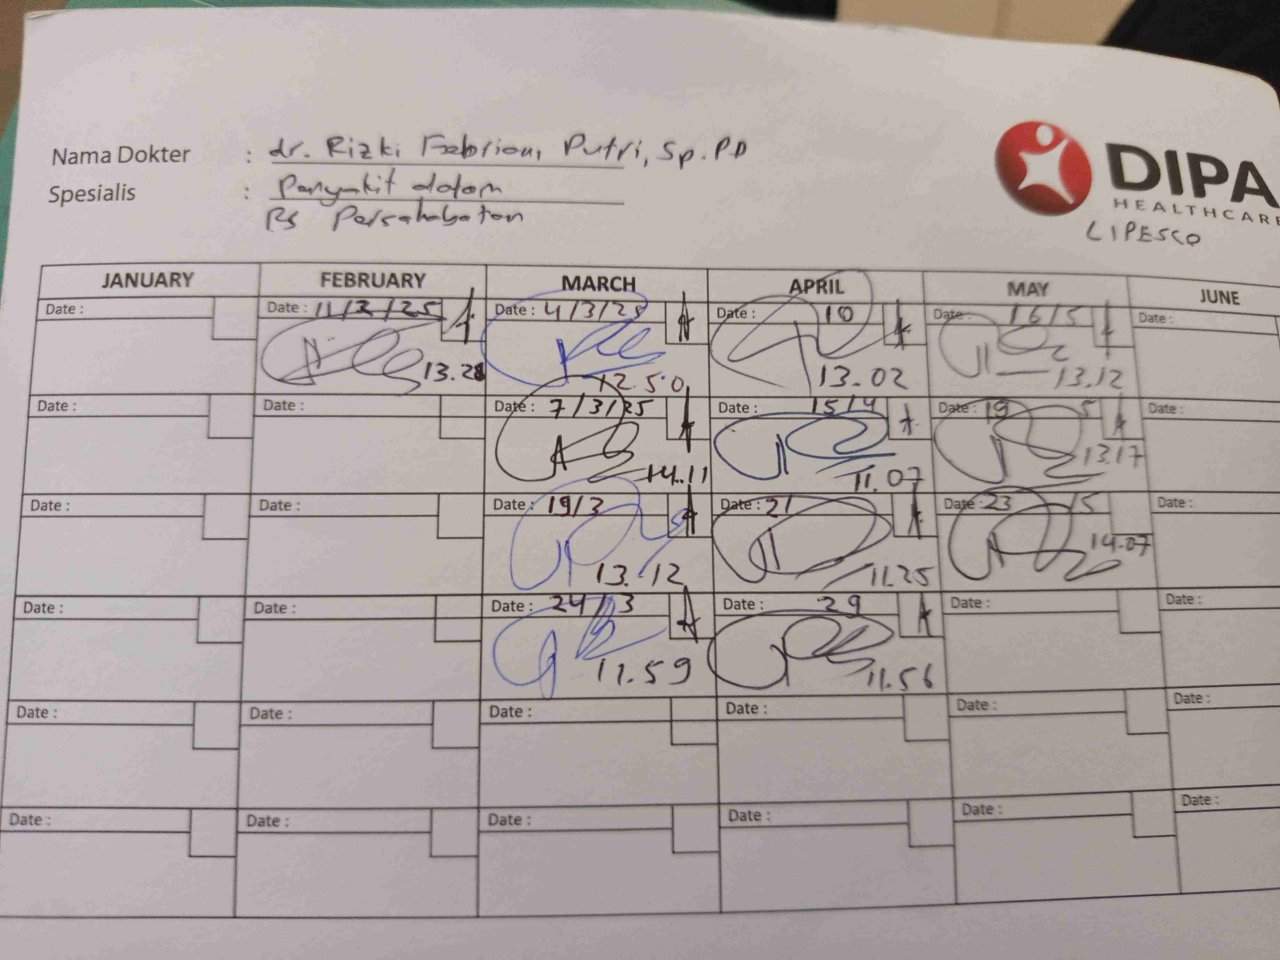 Nama Dokter : dr. Rizki Febriani Putri, Sp.PD
Spesialis : Penyakit dalam
RS Persahabatan
DIPA
HEALTHCARE
LIPESCO
JANUARY FEBRUARY MARCH APRIL MAY JUNE
Date : Date : 11/2/25 Date : 4/3/25 Date : 10 Date : 16/5 Date :
13.28 12.50 13.02 13.12
Date : Date : Date : 7/3/25 Date : 15/4 Date : 19 5 Date :
14.11 11.07 13.17
Date : Date : Date : 19/3 Date : 21 Date : 23 /5 Date :
13.12 11.25 14.07
Date : Date : Date : 24/3 Date : 29 Date : Date :
11.59 11.56
Date : Date : Date : Date : Date : Date :
Date : Date : Date : Date : Date : Date :